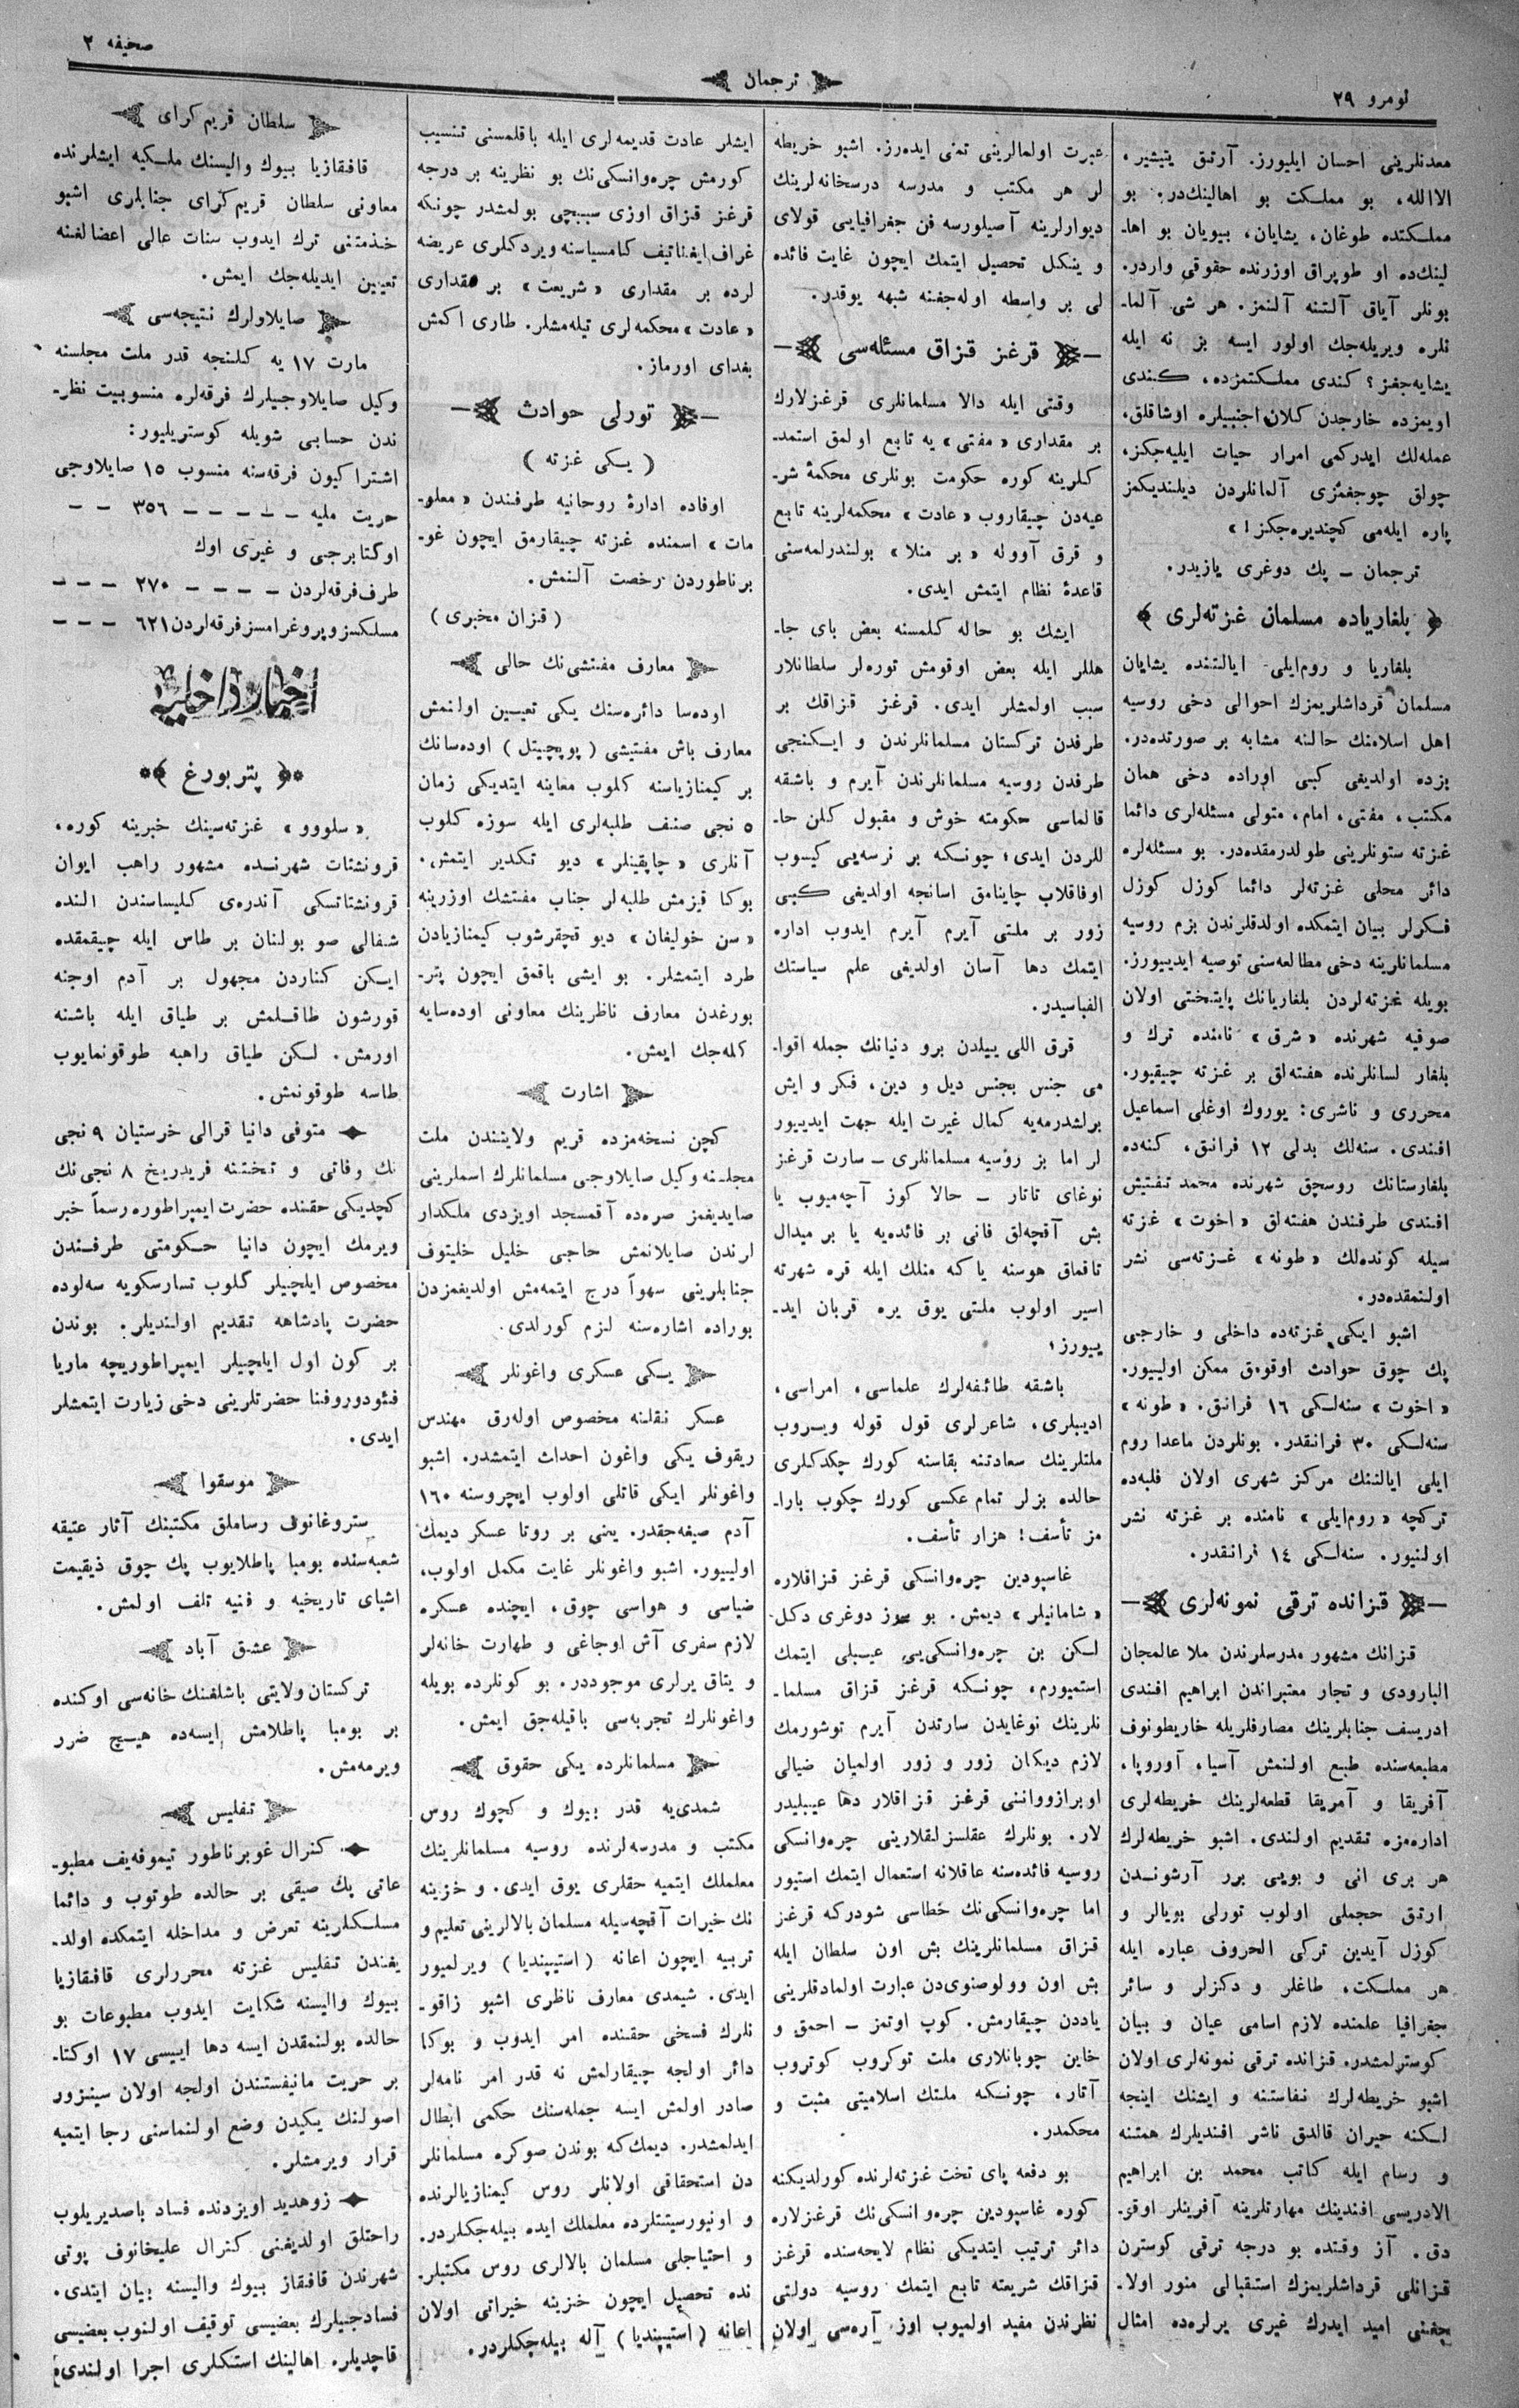 نومرو ٢٩
ترجمان
صحیفه ٢
معدنلرینی احسان ایلیورز. آرتق یتیشیر،
الاالله، بو مملکت بو اهالینك‌در؛ بو
مملکتده طوغان، یشایان، بیویان بو اها-
لینك‌ده او طوپراق اوزرنده حقوقی واردر.
بونلر آیاق آلتنه آلنمز. هر شی آلما-
نلره ویریله‌جك اولور ایسه بز نه ایله
یشایه‌جغز؟ كندی مملكتمزده، كندی
اویمزده خارجدن كلان اجنبیلره اوشاقلق،
عمله‌لك ایدركمی امرار حیات ایلیه‌جكز،
چولق چوجغمزی آلمانلردن دیلندیكمز
پاره ایله‌می كچندیره‌جكز! »
ترجمان ـ پك دوغری یازیدر.
بلغاریاده مسلمان غزته‌لری
بلغاریا و روم‌ایلی ایالتنده یشایان
مسلمان قرداشلریمزك احوالی دخی روسیه
اهل اسلامنك حالنه مشابه بر صورتده‌در.
بزده اولدیغی كبی اوراده دخی همان
مكتب، مفتی، امام، متولی مسئله‌لری دائما
غزته ستونلرینی طولدرمقده‌در. بو مسئله‌لره
دائر محلی غزته‌لر دائما كوزل كوزل
فكرلر بیان ایتمكده اولدقلرندن بزم روسیه
مسلمانلرینه دخی مطالعه‌سنی توصیه ایدییورز.
بویله غزته‌لردن بلغاریانك پایتختی اولان
صوفیه شهرنده « شرق » نامنده ترك و
بلغار لسانلرنده هفته‌لق بر غزته چیقیور.
محرری و ناشری: یوروك اوغلی اسماعیل
افندی. سنه‌لك بدلی ١٢ فرانق، كنه‌ده
بلغارستانك روسچق شهرنده محمد تفتیش
افندی طرفندن هفته‌لق « اخوت » غزته
سیله كونده‌لك « طونه » غزته‌سی نشر
اولنمقده‌در.
اشبو ایكی غزته‌ده داخلی و خارجی
پك چوق حوادث اوقومق ممكن اولییور.
« اخوت » سنه‌لكی ١٦ فرانق. « طونه »
سنه‌لكی ٣٠ فرانقدر. بونلردن ماعدا روم
ایلی ایالتنك مركز شهری اولان فلبه‌ده
تركچه « روم‌ایلی » نامنده بر غزته نشر
اولنیور. سنه‌لكی ١٤ فرانقدر.
قزانده ترقی نمونه‌لری
قزانك مشهور مدرسلرندن ملا عالمجان
البارودی و تجار معتبراندن ابراهیم افندی
ادریسف جنابلرینك مصارفلریله خاریطونوف
مطبعه‌سنده طبع اولنمش آسیا، آوروپا،
آفریقا و آمریقا قطعه‌لرینك خریطه‌لری
اداره‌مزه تقدیم اولندی. اشبو خریطه‌لرك
هر بری انی و بویی برر آرشوندن
ارتق حجملی اولوب تورلی بویالر و
كوزل آیدین تركی الحروف عباره ایله
هر مملكت، طاغلر و دكزلر و سائر
جغرافیا علمنده لازم اسامی عیان و بیان
كوسترلمشدر. قزانده ترقی نمونه‌لری اولان
اشبو خریطه‌لرك نفاستنه و ایشنك اینجه
لكنه حیران قالدق ناشر افندیلرك همتنه
و رسام ایله كاتب محمد بن ابراهیم
الادریسی افندینك مهارتلرینه آفرینلر اوقو-
دق. آز وقتده بو درجه ترقی كوسترن
قزانلی قرداشلریمزك استقبالی منور اولا-
جغنی امید ایدرك غیری یرلرده‌ه امثال
عبرت اولمالرینی تمنی ایده‌رز. اشبو خریطه
لر هر مكتب و مدرسه درسخانه‌لرینك
دیوارلرینه آصیلورسه فن جغرافیایی قولای
و ینكل تحصیل ایتمك ایچون غایت فائده
لی بر واسطه اوله‌جغنه شبهه یوقدر.
قرغز قزاق مسئله‌سی
وقتی ایله دالا مسلمانلری قرغزلارك
بر مقداری « مفتی » یه تابع اولمق استمد-
كلرینه كوره حكومت بونلری محكمۀ شر-
عیه‌دن چیقاروب « عادت » محكمه‌لرینه تابع
و قرق آووله « بر منلا » بولندرلمه‌سنی
قاعدۀ نظام ایتمش ایدی.
ایشك بو حاله كلمسنه بعض بای جا-
هللر ایله بعض اوقومش توره‌لر سلطانلار
سبب اولمشلر ایدی. قرغز قزاقك بر
طرفدن تركستان مسلمانلرندن و ایكنجی
طرفدن روسیه مسلمانلرندن آیرم و باشقه
قالماسی حكومته خوش و مقبول كلن حا-
للردن ایدی؛ چونكه بر نرسه‌یی كیسوب
اوفاقلاب چاینامق اسانجه اولدیغی كبی
زور بر ملتی آیرم آیرم ایدوب اداره
ایتمك دها آسان اولدیغی علم سیاستك
الفباسیدر.
قرق اللی ییلدن برو دنیانك جمله اقوا-
می جنس بجنس دیل و دین، فكر و ایش
برلشدرمه‌یه كمال غیرت ایله جهت ایدییور
لر اما بز روسیه مسلمانلری ـ سارت قرغز
نوغای تاتار ـ حالا كوز آچه‌میوب یا
بش آقچه‌لق فانی بر فائده‌یه یا بر میدال
تاقماق هوسنه یاكه منلك ایله قره شهرته
اسیر اولوب ملتی یوق یره قربان اید-
ییورز؛
باشقه طائفه‌لرك علماسی، امراسی،
ادیبلری، شاعرلری قول قوله ویروب
ملتلرینك سعادتنه بقاسنه كورك چكدكلری
حالده بزلر تمام عكسی كورك چكوب بارا-
مز تأسف! هزار تأسف.
غاسپودین چره‌وانسكی قرغز قزاقلاره
« شامانیلر » دیمش. بو سوز دوغری دكل.
لكن بن چره‌وانسكی‌یی عیبلی ایتمك
استمیورم، چونكه قرغز قزاق مسلما-
نلرینك نوغایدن سارتدن آیرم توشورمك
لازم دیكان زور و زور اولمیان ضیالی
اوبرازوواننی قرغز قزاقلار دها عیبلیدر
لار. بونلرك عقلسزلقلارینی چره‌وانسكی
روسیه فائده‌سنه عاقلانه استعمال ایتمك استیور
اما چره‌وانسكی‌نك خطاسی شودركه قرغز
قزاق مسلمانلرینك بش اون سلطان ایله
بش اون وولوصنوی‌دن عبارت اولمادقلرینی
یاددن چیقارمش. كوپ اوتمز ـ احمق و
خاین چوبانلاری ملت توكروب كوتروب
آتار، چونكه ملتك اسلامیتی مثبت و
محكمدر.
بو دفعه پای تخت غزته‌لرنده كورلدیكنه
كوره غاسپودین چره‌وانسكی‌نك قرغزلاره
دائر ترتیب ایتدیكی نظام لایحه‌سنده قرغز
قزاقك شریعته تابع ایتمك روسیه دولتی
نظرندن مفید اولمیوب اوز آره‌سی اولان
ایشلر عادت قدیمه‌لری ایله باقلمسنی تنسیب
كورمش چره‌وانسكی‌نك بو نظرینه بر درجه
قرغز قزاق اوزی سببچی بولمشدر چونكه
غراف ایغناتیف كامسیاسنه ویردكلری عریضه
لرده بر مقداری « شریعت » بر مقداری
« عادت » محكمه‌لری تیله‌مشلر. طاری اكمش
بغدای اورماز.
تورلی حوادث
( یكی غزته )
اوفاده ادارۀ روحانیه طرفندن « معلو-
مات » اسمنده غزته چیقارمق ایچون غو-
برناطوردن رخصت آلنمش.
( قزان مخبری )
معارف مفتشی‌نك حالی
اوده‌سا دائره‌سنك یكی تعیین اولنمش
معارف باش مفتیشی ( پوپچیتل ) اوده‌سانك
بر كیمنازیاسنه كلوب معاینه ایتدیكی زمان
٥ نجی صنف طلبه‌لری ایله سوزه كلوب
آنلری « چاپقینلر » دیو تكدیر ایتمش.
بوكا قیزمش طلبه‌لر جناب مفتشك اوزرینه
« سن خولیغان » دیو قچقرشوب كیمنازیادن
طرد ایتمشلر. بو ایشی باقمق ایچون پتر-
بورغدن معارف ناظرینك معاونی اوده‌سایه
كله‌جك ایمش.
اشارت
كچن نسخه‌مزده قریم ولایتندن ملت
مجلسنه وكیل صایلاوجی مسلمانلرك اسملرینی
صایدیغمز صره‌ده آقمسجد اویزدی ملكدار
لرندن صایلانمش حاجی خلیل خلیتوف
جنابلرینی سهواً درج ایتمه‌مش اولدیغمزدن
بوراده اشاره‌سنه لزم كورلدی.
یكی عسكری واغونلر
عسكر نقلنه مخصوص اوله‌رق مهندس
ریقوف یكی واغون احداث ایتمشدر. اشبو
واغونلر ایكی قاتلی اولوب ایچروسنه ١٦٠
آدم صیغه‌جقدر. یعنی بر روتا عسكر دیمك
اولییور. اشبو واغونلر غایت مكمل اولوب،
ضیاسی و هواسی چوق، ایچنده عسكره
لازم سفری آش اوجاغی و طهارت خانه‌لر
و یتاق یرلری موجوددر. بو كونلرده بویله
واغونلرك تجربه‌سی باقیله‌جق ایمش.
مسلمانلرده یكی حقوق
شمدی‌یه قدر بیوك و كچوك روس
مكتب و مدرسه‌لرنده روسیه مسلمانلرینك
معلملك ایتمیه حقلری یوق ایدی. و خزینه
نك خیرات آقچه‌سیله مسلمان بالالرینی تعلیم و
تربیه ایچون اعانه ( استیپندیا ) ویرلمیور
ایدی. شیمدی معارف ناظری اشبو زاقو-
نلرك فسخی حقنده امر ایدوب و بوكا
دائر اولجه چیقارلمش نه قدر امر نامه‌لر
صادر اولمش ایسه جمله‌سنك حكمی ابطال
ایدلمشدر. دیمك‌كه بوندن صوكره مسلمانلر
دن استحقاقی اولانلر روس كیمنازیالرنده
و اونیورسیتتلرده معلملك ایده بیله‌جكلردر.
و احتیاجلی مسلمان بالالری روس مكتبلر-
نده تحصیل ایچون خزینه خیراتی اولان
اعانه ( استیپندیا ) آله بیله‌جكلردر.
سلطان قریم كرای
قافقازیا بیوك والیسنك ملكیه ایشلرنده
معاونی سلطان قریم كرای جنابلری اشبو
خذمتنی ترك ایدوب سنات عالی اعضالغنه
تعیین ایدیله‌جك ایمش.
صایلاولرك نتیجه‌سی
مارت ١٧ یه كلنجه قدر ملت مجلسنه
وكیل صایلاوجیلرك فرقه‌لره منسوبیت نظر-
ندن حسابی شویله كوستریلیور:
اشتراكیون فرقه‌سنه منسوب ١٥ صایلاوجی
حریت ملیه ـ ـ ـ ـ ـ ٣٥٦ ـ ـ
اوكتابرجی و غیری اوك
طرف‌فرقه‌لردن ـ ـ ـ ـ ٢٧٠ ـ ـ ـ
مسلكسز و پروغرامسز فرقه‌لردن ٦٢١ ـ ـ ـ
اخبار داخلیه
پتربورغ
« سلووو » غزته‌سینك خبرینه كوره،
قرونشتات شهرنده مشهور راهب ایوان
قرونشتاتسكی آندره‌ی كلیساسندن النده
شفالی صو بولنان بر طاس ایله چیقمقده
ایكن كناردن مجهول بر آدم اوجنه
قورشون طاقلمش بر طیاق ایله باشنه
اورمش. لكن طیاق راهبه طوقونمایوب
طاسه طوقونمش.
متوفی دانیا قرالی خرستیان ٩ نجی
نك وفاتی و تختنه فریدریخ ٨ نجی‌نك
كچدیكی حقنده حضرت ایمپراطوره رسماً خبر
ویرمك ایچون دانیا حكومتی طرفندن
مخصوص ایلچیلر كلوب تسارسكویه سه‌لوده
حضرت پادشاهه تقدیم اولندیلر. بوندن
بر كون اول ایلچیلر ایمپراطوریچه ماریا
فئودوروفنا حضرتلرینی دخی زیارت ایتمشلر
ایدی.
موسقوا
ستروغانوف رساملق مكتبنك آثار عتیقه
شعبه‌سنده بومبا پاطلایوب پك چوق ذیقیمت
اشیای تاریخیه و فنیه تلف اولمش.
عشق آباد
تركستان ولایتی باشلغنك خانه‌سی اوكنده
بر بومبا پاطلامش ایسه‌ده هیچ ضرر
ویرمه‌مش.
تفلیس
كنرال غوبرناطور تیموفه‌یف مطبو-
عاتی پك صیقی بر حالده طوتوب و دائما
مسلكلرینه تعرض و مداخله ایتمكده اولد-
یغندن تفلیس غزته محررلری قافقازیا
بیوك والیسنه شكایت ایدوب مطبوعات بو
حالده بولنمقدن ایسه دها ایییسی ١٧ اوكتا-
بر حریت مانیفستندن اولجه اولان سینزور
اصولنك یكیدن وضع اولنماسنی رجا ایتمیه
قرار ویرمشلر.
زوهدید اویزدنده فساد باصدیریلوب
راحتلق اولدیغنی كنرال علیخانوف پوتی
شهرندن قافقاز بیوك والیسنه بیان ایتدی.
فسادجیلرك بعضیسی توقیف اولنوب بعضیسی
قاچدیلر. اهالینك استكلری اجرا اولندی